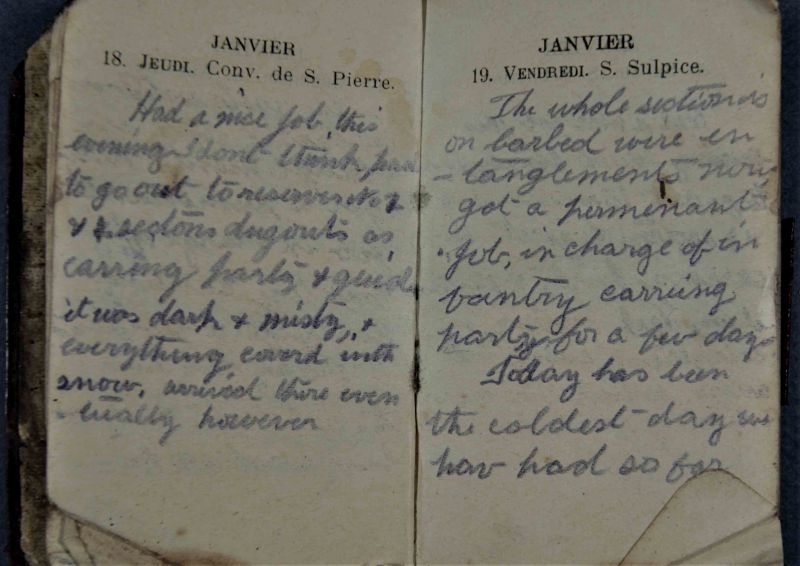 JANVIER
18. JEUDI. Conv. de S. Pierre.
Had a nice job, this
evening I dont think, had
to go out to reserves No
& sections dugouts as
carring party & guide
it was dark & misty, &
everything coverd with
snow, arrived there even
- tually however
JANVIER
19. VENDREDI. S. Sulpice.
The whole section is
on barbed wire en
- tanglements now
got a permenant
job, in charge of in
fantry carriing
party for a few days
Today has been
the coldest day we
hav had so far